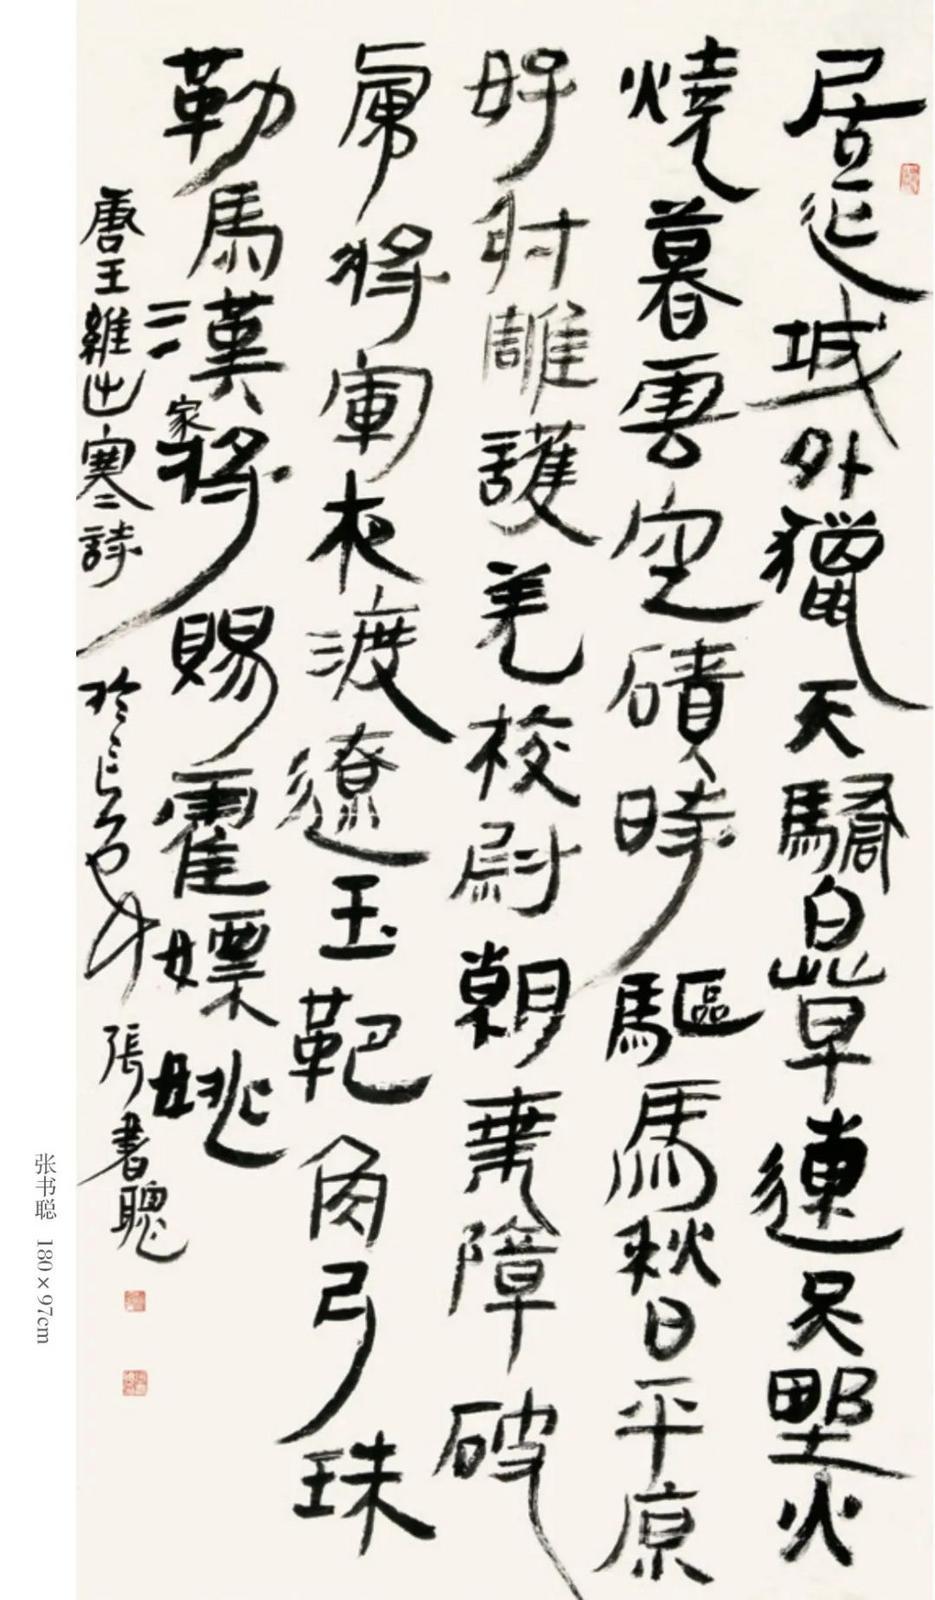 居延城外獵天驕白草連天野火
燒暮雲空磧時驅馬秋日平原
好射雕護羌校尉朝乘障破
虜將軍夜渡遼玉靶角弓珠
勒馬漢家將賜霍嫖姚
唐王維出塞詩 張書聰
张书聪 180×97cm